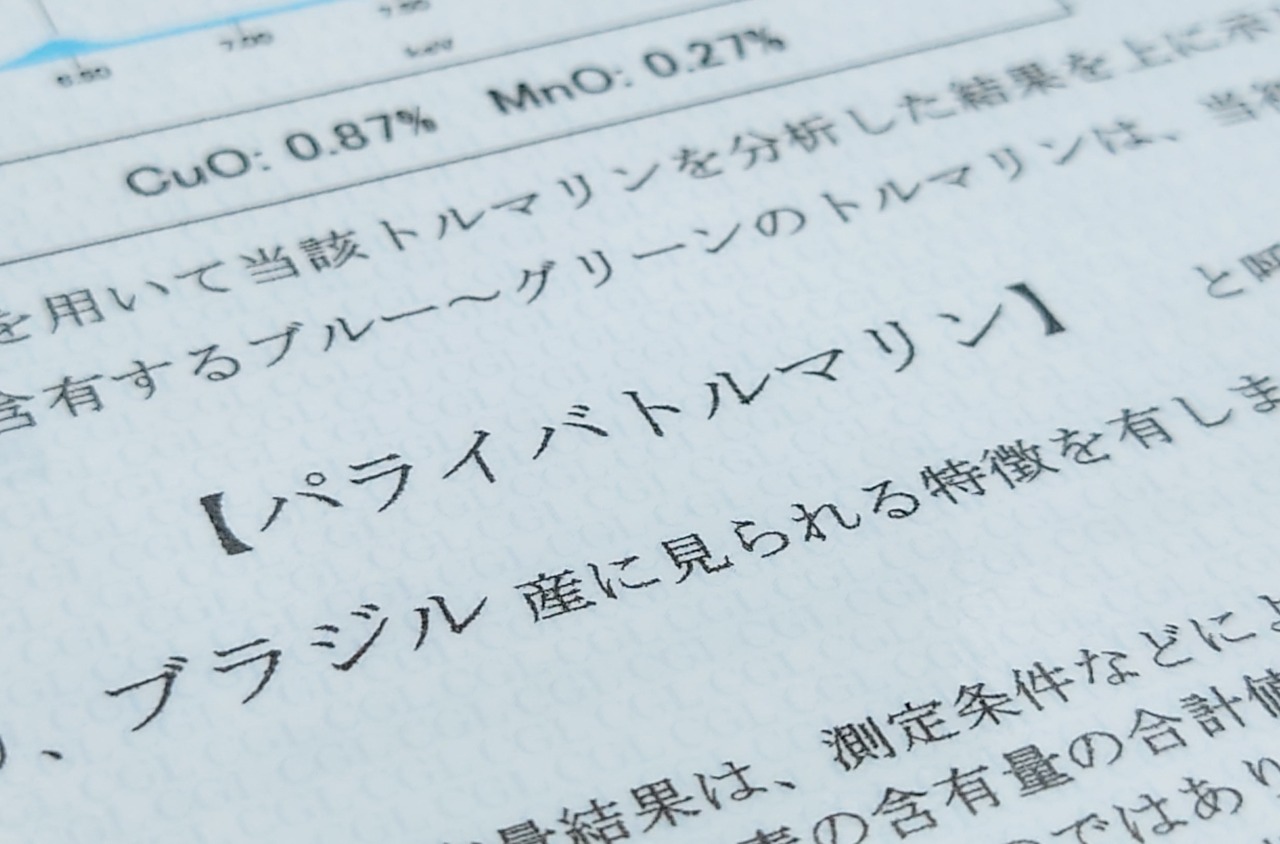 6.50 7.00
CuO: 0.87% MnO: 0.27%
を用いて当該トルマリンを分析した結果を上に示
含有するブルー～グリーンのトルマリンは、当
【パライバトルマリン】 と
、ブラジル 産に見られる特徴を有しま
量結果は、測定条件などによ
素の含有量の合計値
のではあり